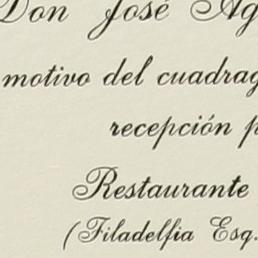 Don José Ag
motivo del cuadrag
recepción p
Restaurante
(Filadelfia Esq.